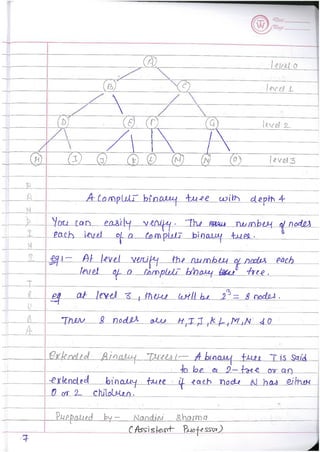 Date
Page
A level 0
B C level 1
D E F G level 2
H I J K L M N O level 3
A Complete binary tree with depth 4
You can easily verify. The number of nodes
each level of a complete binary tree.
eg:- At level verify the number of nodes each
level of a complete binary tree.
eg at level 3, there will be 2³ = 8 nodes.
Then 8 nodes are H, I, J, K, L, M, N & O
Extended Binary Trees:- A binary tree T is said
to be a 2-tree or an
extended binary tree if each node N has either
0 or 2 children.
Prepared by - Nandini Sharma
(Assistant Professor)
7